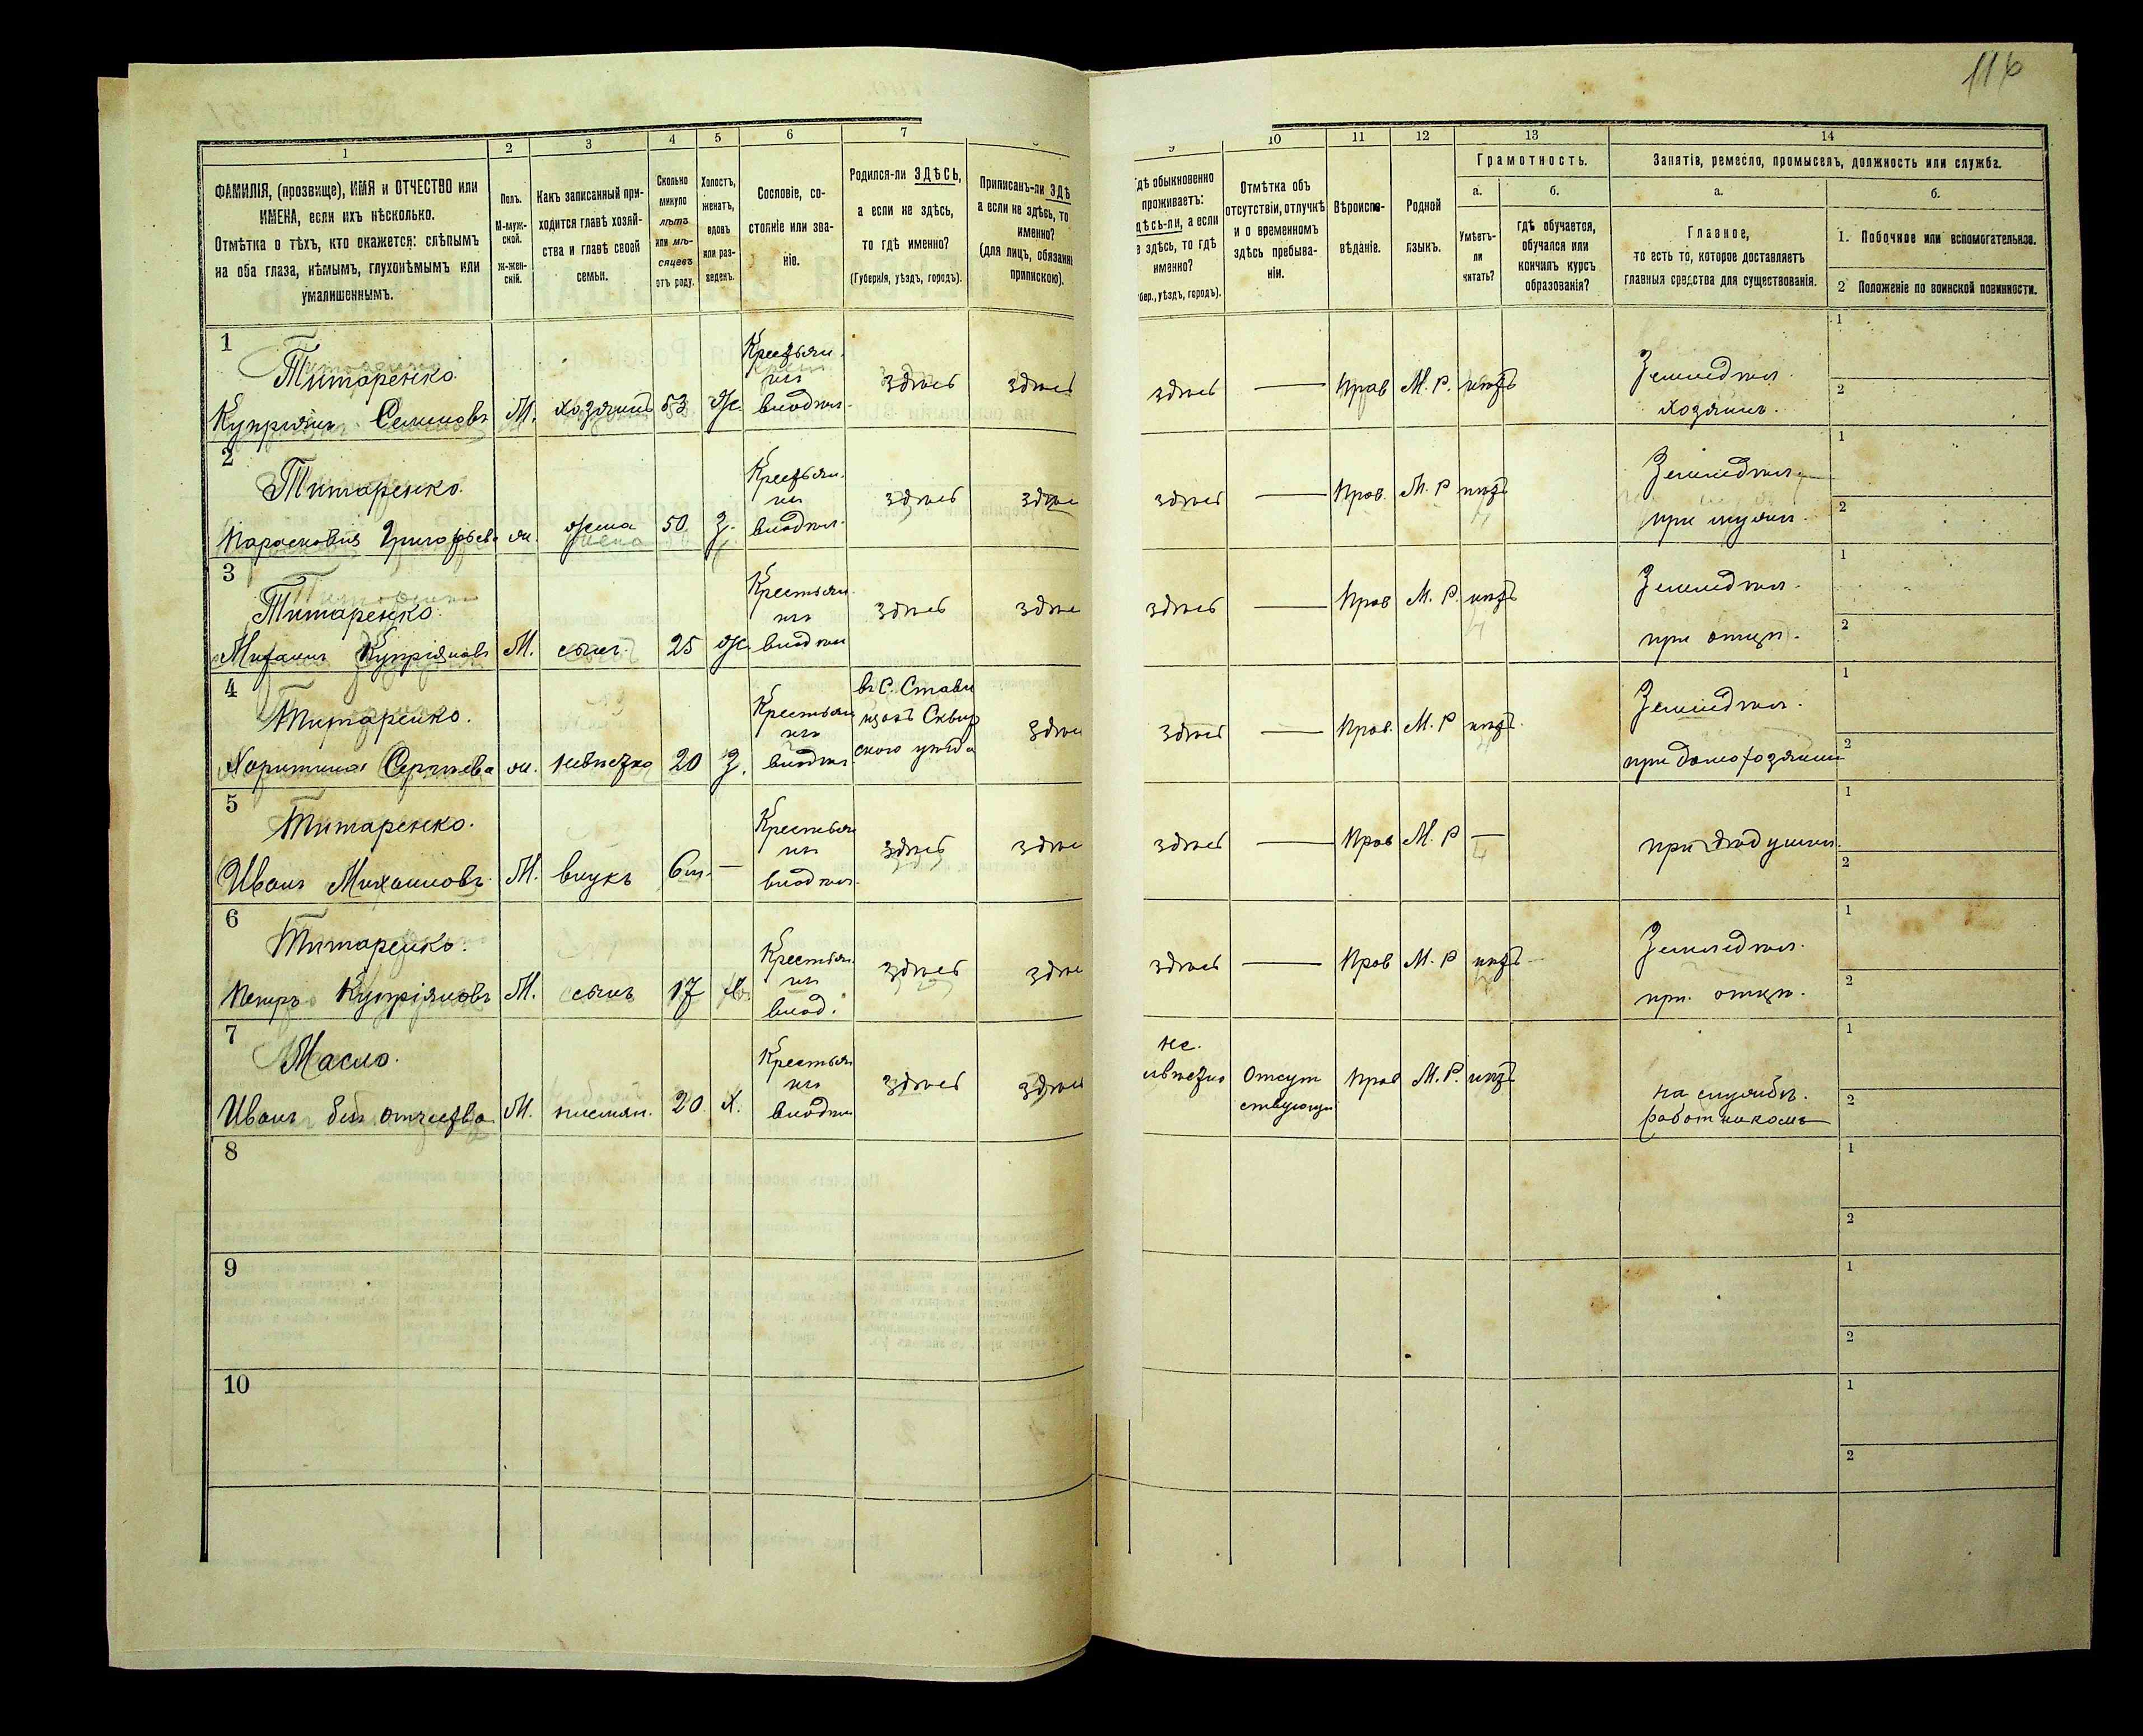 116
1
2
3
4
5
6
7
ФАМИЛІЯ, (прозвище), ИМЯ и ОТЧЕСТВО или
ИМЕНА, если ихъ нѣсколько.
Отмѣтка о тѣхъ, кто окажется: слѣпымъ
на оба глаза, нѣмымъ, глухонѣмымъ или
умалишеннымъ.
Полъ.
М-муж-
ской.
Ж-жен-
скій.
Какъ записанный при-
ходится главѣ хозяй-
ства и главѣ своей
семьи.
Сколько
минуло
лѣтъ
или мѣ-
сяцевъ
отъ роду.
Холостъ,
женатъ,
вдовъ
или раз-
веденъ.
Сословіе, со-
стояніе или зва-
ніе.
Родился-ли ЗДѢСЬ,
а если не здѣсь,
то гдѣ именно?
(Губернія, уѣздъ, городъ).
Приписанъ-ли ЗДѢ
а если не здѣсь, то
именно?
(для лицъ, обязанн
припискою).
9
10
11
12
13
14
гдѣ обыкновенно
проживаетъ:
здѣсь-ли, а если
е здѣсь, то гдѣ
именно?
бер., уѣздъ, городъ).
Отмѣтка объ
отсутствіи, отлучкѣ
и о временномъ
здѣсь пребыва-
ніи.
Вѣроиспо-
вѣданіе.
Родной
языкъ.
Грамотность.
а.
б.
Умѣетъ-
ли
читать?
гдѣ обучается,
обучался или
кончилъ курсъ
образованія?
Занятія, ремесло, промыселъ, должность или служба.
а.
б.
Главное,
то есть то, которое доставляетъ
главныя средства для существованія.
1. Побочное или вспомогательное.
2 Положеніе по воинской повинности.
1
Титаренко
Купріянъ Семеновъ
М. хозяинъ 53 ж.
Крестьян.
здѣсь здѣсь
здѣсь — прав М. Р. нѣтъ
хозяинъ.
1
2
2
Титаренко.
Парасковія Григорьева
ж. жена 50 З.
Крестьян.
здѣсь
здѣсь — прав. М. Р нѣтъ
при мужѣ.
1
2
3
Титаренко.
Михаилъ Купріяновъ
М. сынъ. 25 ж.
Крестьян.
здѣсь
здѣсь — прав М. Р. нѣтъ
при отцѣ.
1
2
4
Титаренко.
Харитина Сергѣева
ж. невѣстка 20 З.
Крестьян
въ С. Стави
щахъ Сквир
ского уѣзда
здѣсь — прав. М. Р нѣтъ
при домохозяинѣ
1
2
5
Титаренко.
Иванъ Михаиловъ
М. внукъ 6м. —
Крестьян
здѣсь
здѣсь — прав М. Р —
при дѣдушкѣ.
1
2
6
Титаренко.
Петръ Купріяновъ
М. сынъ 17 х.
Крестьян.
здѣсь
здѣсь — прав М. Р нѣтъ
при. отцѣ.
1
2
7
Масло.
Иванъ безъ отчества
М. 20. Х.
Крестьян
здѣсь здѣсь
не.
Отсут
ствующи
прав М. Р. нѣтъ
на службѣ.
работникомъ
1
2
8
1
2
9
1
2
10
1
2